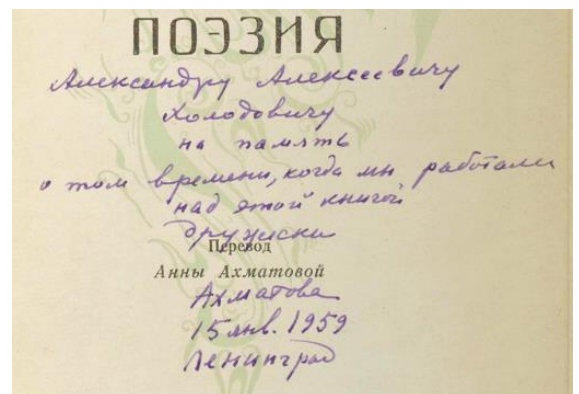 ПОЭЗИЯ
Александру Алексеевичу
Холодовичу
на память
о том времени, когда мы работали
над этой книгой
дружески
Перевод
Анны Ахматовой
Ахматова
15 янв. 1959
Ленинград